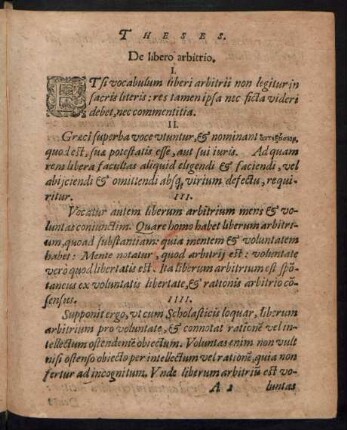 THESES.
De libero arbitrio.
I.
ETsi vocabulum liberi arbitrii non legitur in
sacris literis: res tamen ipsa nec ficta videri
debet, nec commentitia.
II.
Græci superba voce vtuntur, & nominant
quod est, suæ potestatis esse, aut sui iuris. Ad quam
rem libera facultas aliquid eligendi & faciendi, vel
abijciendi & omittendi absq; virium defectu, requi-
ritur.
III.
Vocatur autem liberum arbitrium mens & vo-
luntas coniunctim. Quare homo habet liberum arbitri-
um, quoad substantiam: quia mentem & voluntatem
habet: Mente notatur, quod arbitrij est: voluntate
vero quod libertatis est. Ita liberum arbitrium est spō-
taneus ex voluntatis libertate, & rationis arbitrio cō-
sensus.
IIII.
Supponit ergo, vt cum Scholasticis loquar, liberum
arbitrium pro voluntate, & connotat rationē vel in-
tellectum ostendentē obiectum. Voluntas enim non vult
nisi ostenso obiecto per intellectum vel rationē, quia non
fertur ad incognitum. Vnde liberum arbitriū est vo-
A 2 luntas